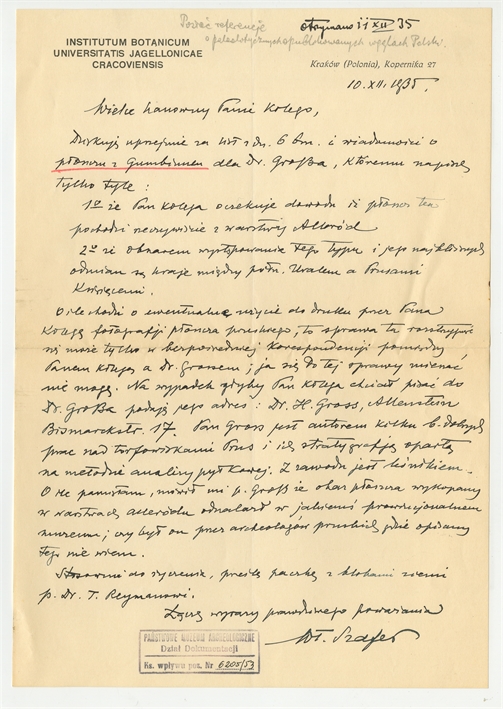 Podać referencje
otrzymano 11 XII 35
o paleolitycznych opublikowanych węglach Polski.
INSTITUTUM BOTANICUM
UNIVERSITATIS JAGELLONICAE
CRACOVIENSIS
Kraków (Polonia), Kopernika 27
10.XII.1935.
Wielce Szanowny Panie Kolego,
Dziękuję uprzejmie za list z dn. 6 bm. i wiadomości o
płoszczu z Gumbinnen dla Dr. Großa, któremu napiszę
tylko tyle:
1º że Pan Kolega oczekuje dowodu iż
pochodzi rzeczywiście z warstwy Alleröd
2º że obszarem występowania tego typu i jego najbliższych
odmian są kraje między połn. Uralem a Prusami
Książęcemi.
O ile chodzi o ewentualne użycie do druku przez Pana
Kolegę fotografji pruskiego, to sprawa ta rozstrzygnąć
się może tylko w bezpośredniej korespondencji pomiędzy
Panem Kolegą a dr. Grossem; ja się do tej sprawy mieszać
nie mogę. Na wypadek gdyby Pan Kolega chciał pisać do
Dr. Großa podaję jego adres: Dr. H. Gross, Allenstein
Bismarckstr. 17. Pan Gross jest autorem kilku b. dobrych
prac nad torfowiskami Prus i ich stratygrafją opartą
na metodzie analizy pyłkowej. Z zawodu jest leśnikiem.
O ile pamiętam, mówił mi p. Groß że okaz wykopany
w warstwach alleródu odnalazł w jakiemś prowincjonalnem
muzeum; czy był on przez archeologów pruskich gdzie opisany
tego nie wiem.
Stosownie do życzenia, prześlę paczkę z klockami ziemi
p. Dr. T. Reymanowi.
Łączę wyrazy prawdziwego poważania
Wł. Szafer
PAŃSTWOWE MUZEUM ARCHEOLOGICZNE
Dział Dokumentacji
Ks. wpływu poz. Nr 6205/53